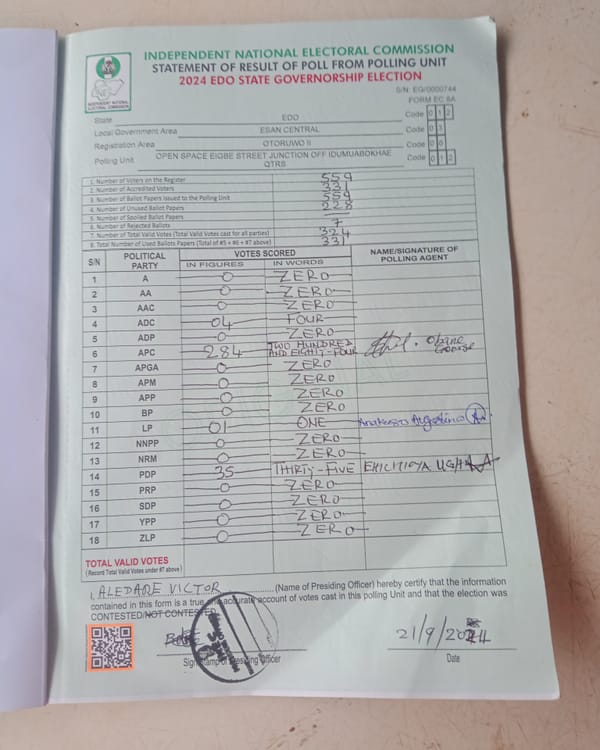 INDEPENDENT NATIONAL ELECTORAL COMMISSION
STATEMENT OF RESULT OF POLL FROM POLLING UNIT
2024 EDO STATE GOVERNORSHIP ELECTION
INDEPENDENT NATIONAL
ELECTORAL COMMISSION
S/N: EG/0000744
FORM EC 8A
State EDO Code 0 1 2
Local Government Area ESAN CENTRAL Code 0 3
Registration Area OTORUWO II Code 0 0
Polling Unit OPEN SPACE EIGBE STREET JUNCTION OFF IDUMUABOKHAE QTRS Code 0 1 2
1. Number of Voters on the Register 559
2. Number of Accredited Voters 331
3. Number of Ballot Papers Issued to the Polling Unit 559
4. Number of Unused Ballot Papers 228
5. Number of Spoiled Ballot Papers —
6. Number of Rejected Ballots 7
7. Number of Total Valid Votes (Total Valid Votes cast for all parties) 324
8. Total Number of Used Ballots Papers (Total of #5 + #6 + #7 above) 331
S/N POLITICAL PARTY VOTES SCORED NAME/SIGNATURE OF POLLING AGENT
IN FIGURES IN WORDS
1 A 0 ZERO
2 AA 0 ZERO
3 AAC 0 ZERO
4 ADC 04 FOUR
5 ADP 0 ZERO
6 APC 284 TWO HUNDRED AND EIGHTY-FOUR George
7 APGA 0 ZERO
8 APM 0 ZERO
9 APP 0 ZERO
10 BP 0 ZERO
11 LP 01 ONE
12 NNPP 0 ZERO
13 NRM 0 ZERO
14 PDP 35 THIRTY-FIVE
15 PRP 0 ZERO
16 SDP 0 ZERO
17 YPP 0 ZERO
18 ZLP 0 ZERO
TOTAL VALID VOTES
(Record Total Valid Votes under #7 above)
I, ALEDARE VICTOR (Name of Presiding Officer) hereby certify that the information
contained in this form is a true and accurate account of votes cast in this polling Unit and that the election was
CONTESTED/NOT CONTESTED
21/9/2024
Sign/Stamp of Presiding Officer Date